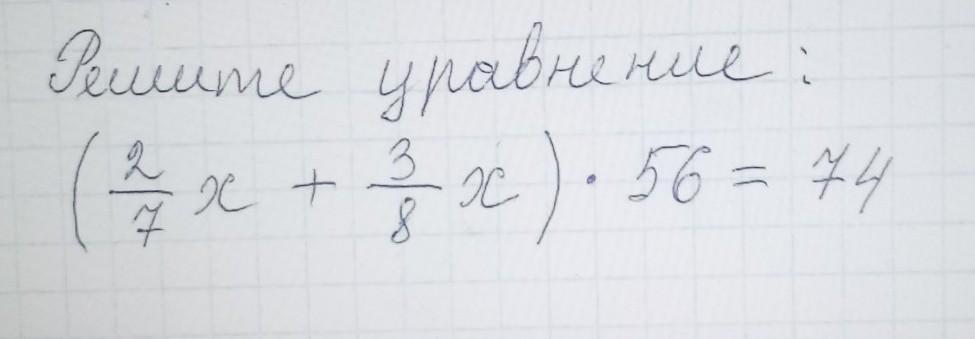 Решите уравнение:
(2/7 x + 3/8 x) · 56 = 74